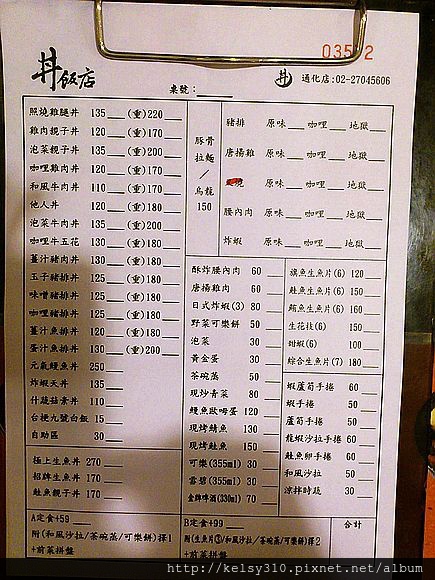 03512
丼飯店
桌號：
丼 通化店:02-27045606
照燒雞腿丼 135 (重)220
雞肉親子丼 120 (重)170
泡菜親子丼 135 (重)200
咖哩雞肉丼 120 (重)170
和風牛肉丼 110 (重)170
他人丼 120 (重)180
泡菜牛肉丼 135 (重)200
咖哩牛五花 130 (重)180
薑汁豬肉丼 130 (重)180
玉子豬排丼 125 (重)180
味噌豬排丼 125 (重)180
咖哩豬排丼 125 (重)180
薑汁魚排丼 125 (重)180
蛋汁魚排丼 130 (重)200
元氣鰻魚丼 250
炸蝦天丼 135
什蔬菇素丼 110
台梗九號白飯 15
自助區 30
極上生魚丼 270
招牌生魚丼 170
鮭魚親子丼 170
A定食+59
附(和風沙拉/茶碗蒸/可樂餅)擇1
+前菜拼盤
豚骨拉麵／烏龍 150
豬排 原味 咖哩 地獄
唐揚雞 原味 咖哩 地獄
原味 咖哩 地獄
腰內肉 原味 咖哩 地獄
炸蝦 原味 咖哩 地獄
酥炸腰內肉 60
唐揚雞肉 60
日式炸蝦(3) 80
野菜可樂餅 50
泡菜 30
黃金蛋 30
茶碗蒸 50
現炒青菜 80
鰻魚歐姆蛋 120
現烤鯖魚 130
現烤鮭魚 150
可樂(355ml) 30
雪碧(355ml) 30
金牌啤酒(330ml) 70
旗魚生魚片(6) 120
鮭魚生魚片(6) 150
鮪魚生魚片(6) 160
生花枝(6) 150
甜蝦(6) 100
綜合生魚片(7) 180
蝦蘆筍手捲 60
蝦手捲 50
蘆筍手捲 50
龍蝦沙拉手捲 60
鮭魚卵手捲 60
和風沙拉 50
涼拌時蔬 30
B定食+99
附(生魚片③/和風沙拉/茶碗蒸/可樂餅)擇2
+前菜拼盤
合計
http://kelsy310.pixnet.net/album